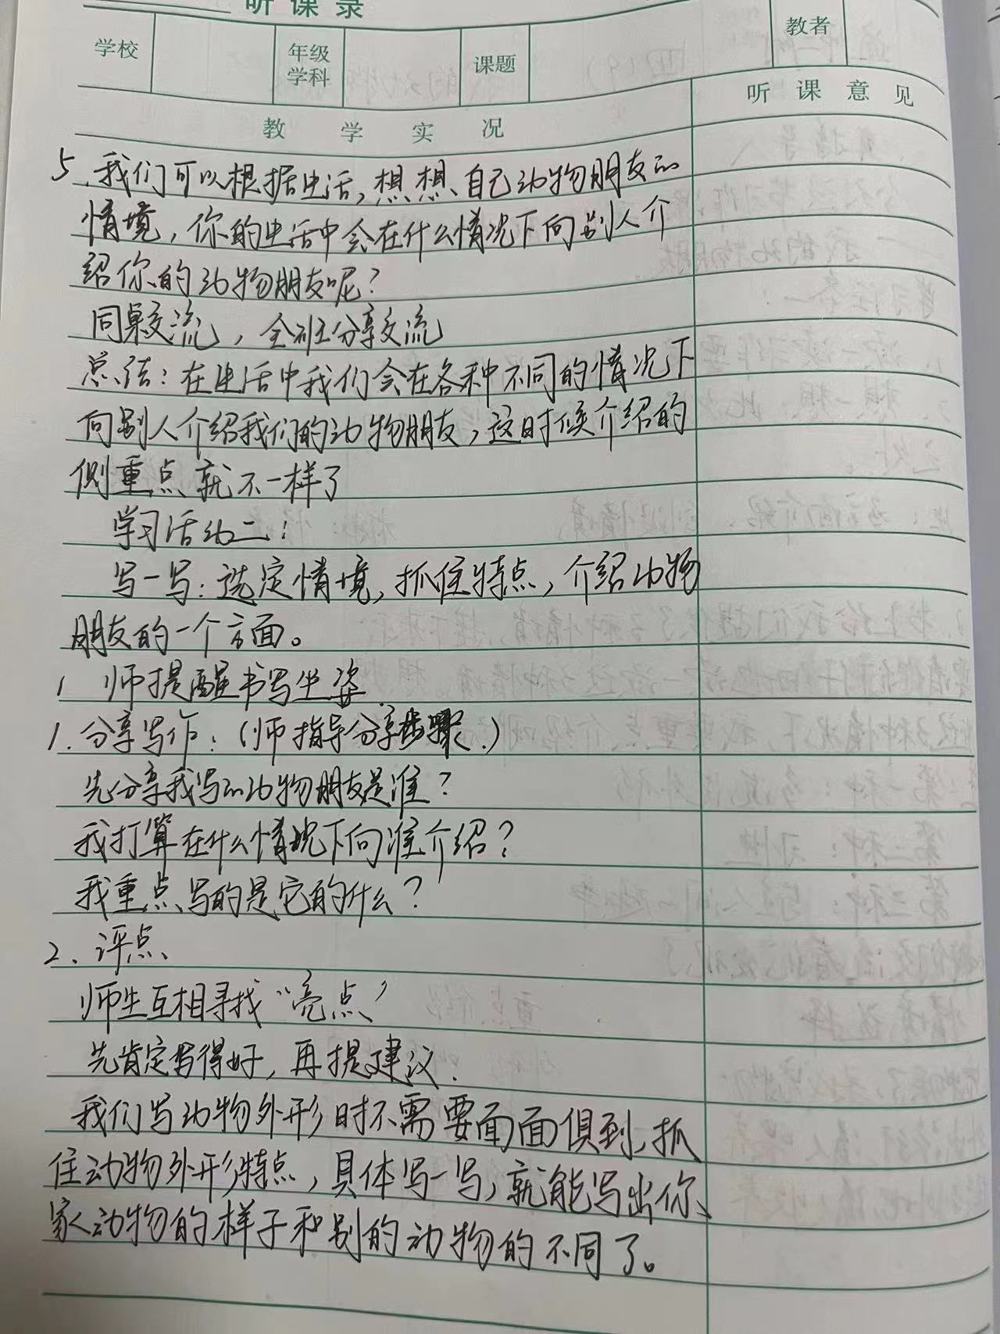 听课录
学校 年级学科 课题 教者
教学实况 听课意见
5.我们可以根据生活,想想、自己动物朋友的
情境,你的生活中会在什么情况下向别人介
绍你的动物朋友呢?
同桌交流,全班分享交流
总结:在生活中我们会在各种不同的情况下
向别人介绍我们的动物朋友,这时候介绍的
侧重点就不一样了
学习活动二:
写一写:选定情境,抓住特点,介绍动物
朋友的一个方面。
1 师提醒书写坐姿
1.分享写作:(师指导分享步骤.)
先分享我写的动物朋友是谁?
我打算在什么情况下向谁介绍?
我重点写的是它的什么?
2.评点
师生互相寻找“亮点”
先肯定写得好,再提建议.
我们写动物外形时不需要面面俱到,抓
住动物外形特点,具体写一写,就能写出你
家动物的样子和别的动物的不同了。